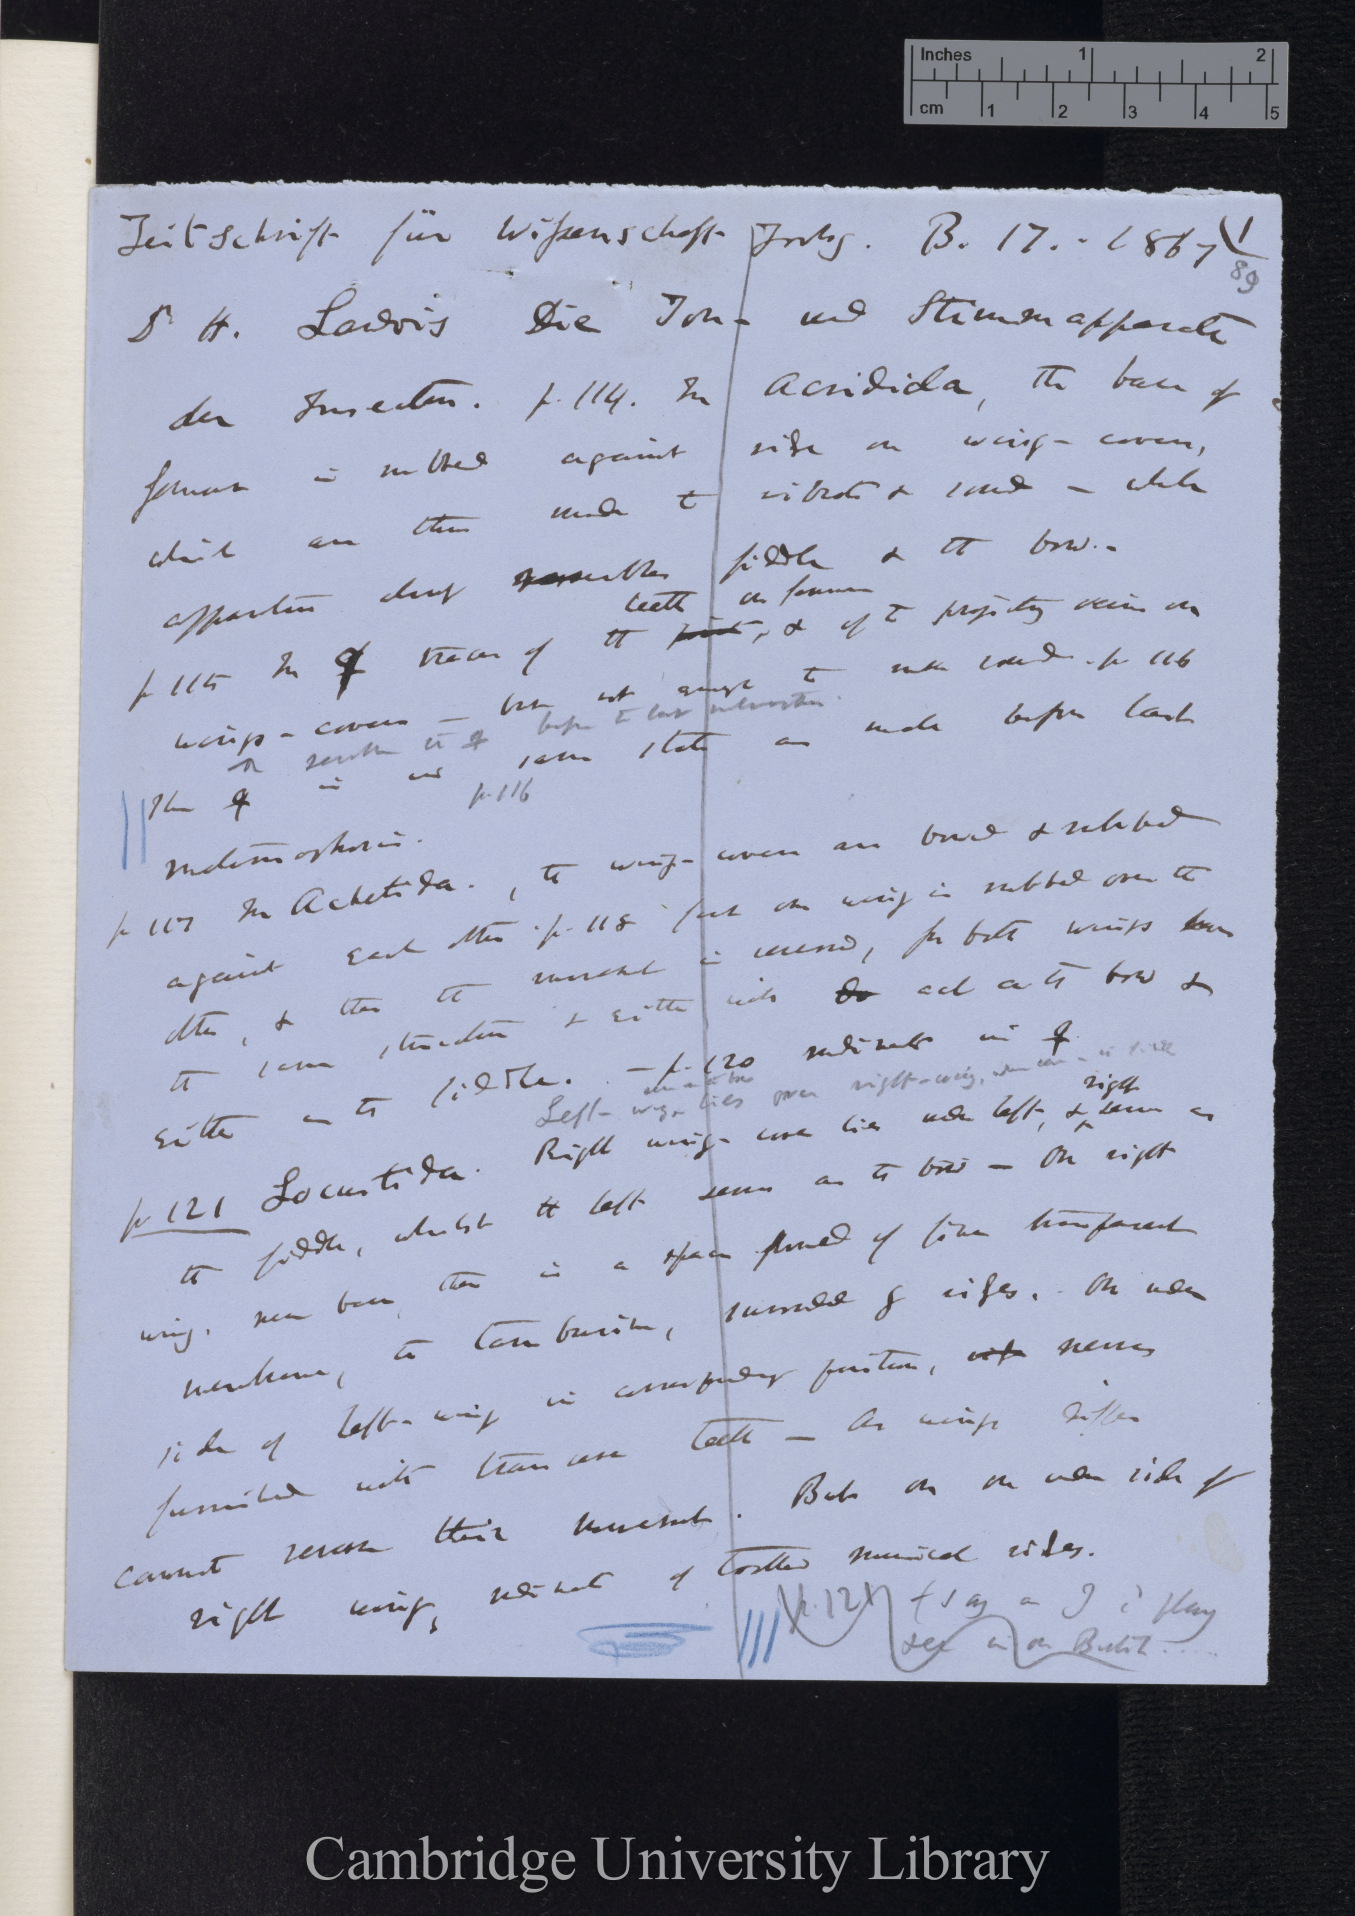 Inches 1 2
cm 1 2 3 4 5
Zeitschrift für Wissenschaft Zoolog. B. 17. - 1867 (1
89
Dr H. Landois Die Ton- und Stimmapparate
der Insecten. p. 114. In Acridida, the base of
femur is rubbed against side on wing-covers,
which are thus made to vibrate & sound — whole
apparatus closely resembles fiddle & the bow.-
teeth on femur
p 115 In ♀ traces of the , & of the projecting veins on
wing-covers — but not enough to make sound. p 116
♀ before the last
The ♀ is in same state as male before last
p. 116
metamorphosis.
p 117 In Achetidæ. , the wing-covers are bowed & rubbed
against each other. p. 118 first one wing is rubbed over the
other, & then the movement is reversed, for both wings have
the same structure & either wing do act as the bow &
either as the fiddle. — p. 120 rudiments in ♀
Left-wing lies over right-wing,
right
p 121 Locustidæ. Right wing-cover lies under left, & serves as
the fiddle, whilst the left serves as the bow — On right
wing, near base, there is a space formed of fine transparent
membrane, the tambourine, surrounded by ridges. - On under
side of left-wing in corresponding position, nerves
furnished with transverse teeth — As wings differ
cannot reverse their movement. But on under side of
right wing, rudiment of toothed musical ridges.
p. 121